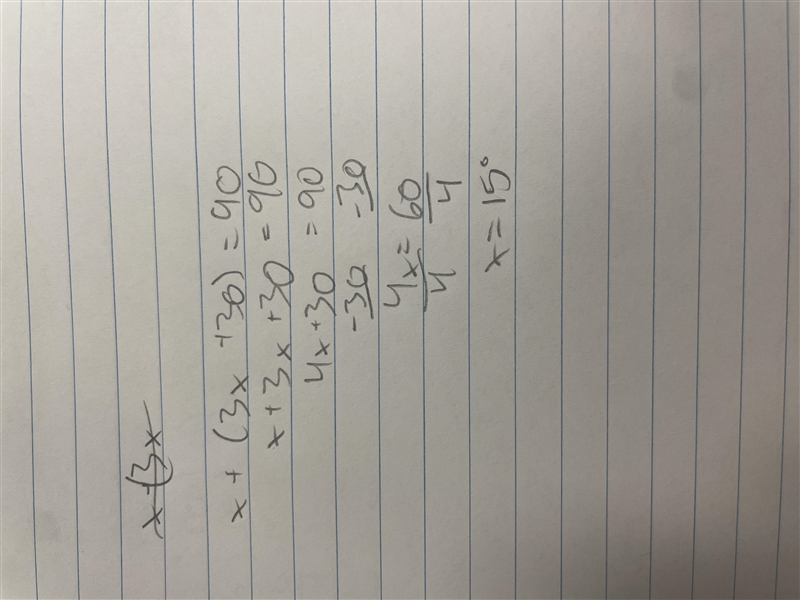 x+(3x
x + (3x +30) = 90
x+3x+30 = 90
4x+30 = 90
-30 -30
4x = 60
4 4
x = 15°